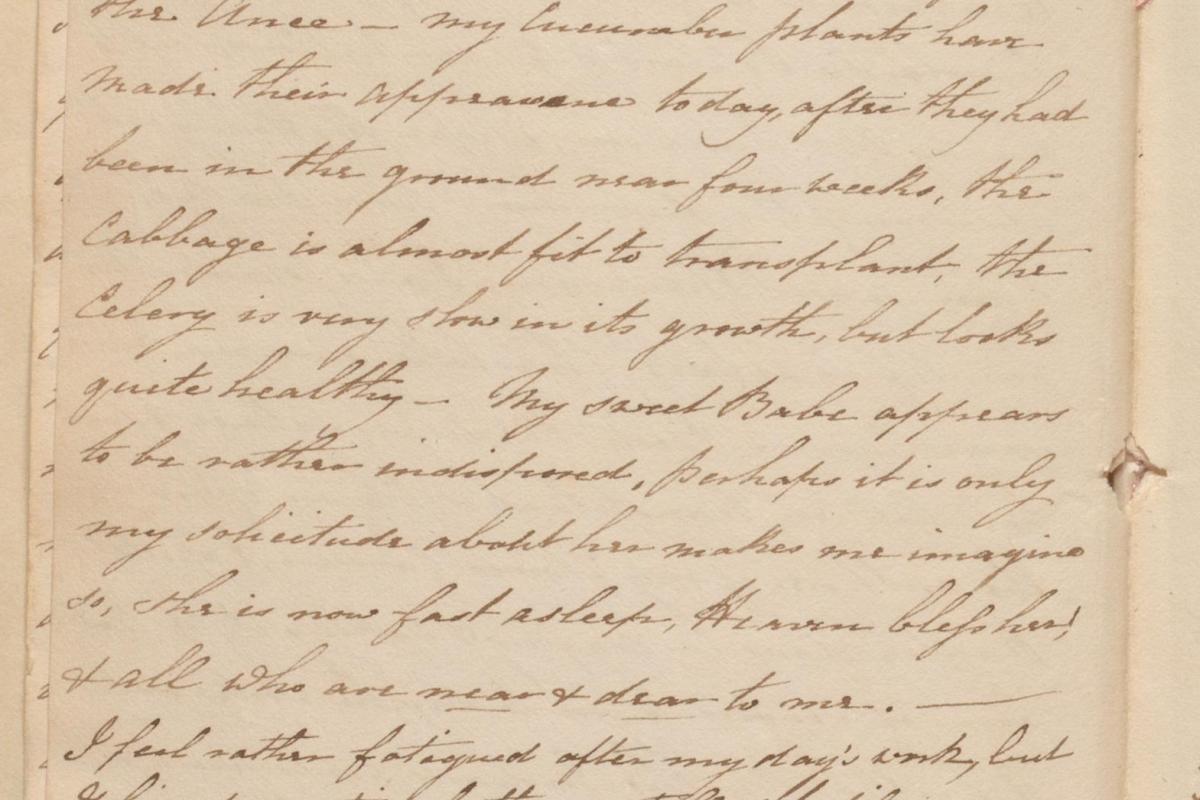 the Anee — my Cucumber plants have
made their appearance today, after they had
been in the ground near four weeks, the
Cabbage is almost fit to transplant, the
Celery is very slow in its growth, but looks
quite healthy — My sweet Babe appears
to be rather indisposed, perhaps it is only
my solicitude about her makes me imagine
so, she is now fast asleep, Heaven bless her!
& all who are near & dear to me. —
I feel rather fatigued after my day's work, but